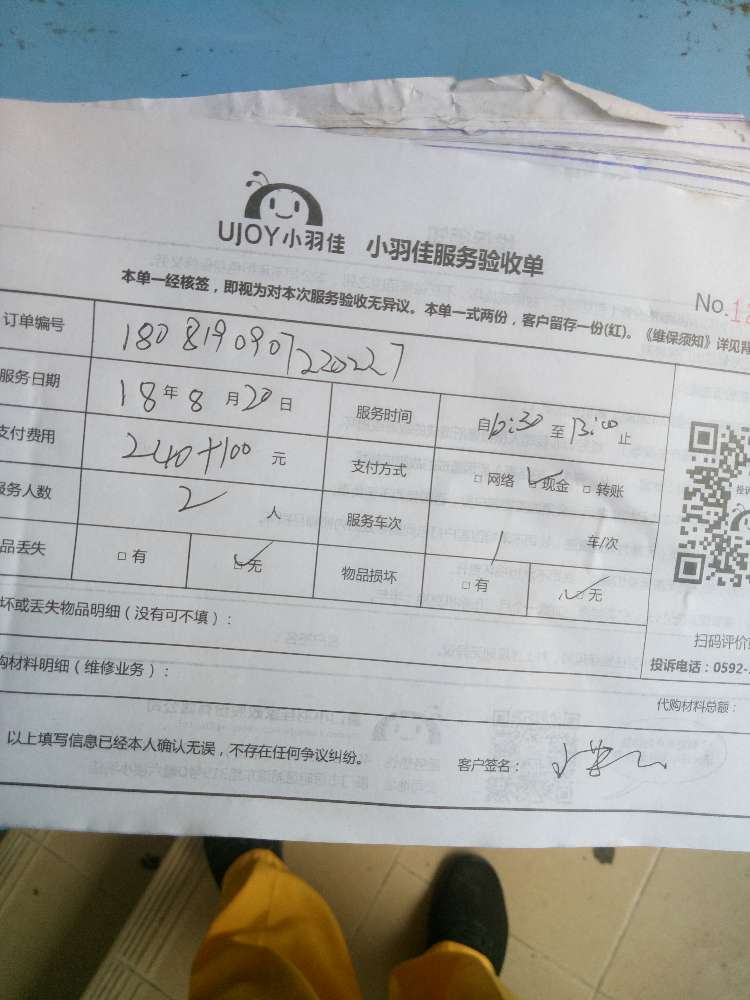 UJOY小羽佳 小羽佳服务验收单
No.12
本单一经核签，即视为对本次服务验收无异议。本单一式两份，客户留存一份(红)。《维保须知》详见背
订单编号 1808190907220227
服务日期 18年8月20日 服务时间 自 至 止
支付费用 240+100元 支付方式 □网络 ☑现金 □转账
服务人数 2人 服务车次 1 车/次
品丢失 □有 ☑无 物品损坏 □有 ☑无
坏或丢失物品明细（没有可不填）：
扫码评价
购材料明细（维修业务）：
投诉电话：0592-
代购材料总额：
以上填写信息已经本人确认无误，不存在任何争议纠纷。 客户签名：